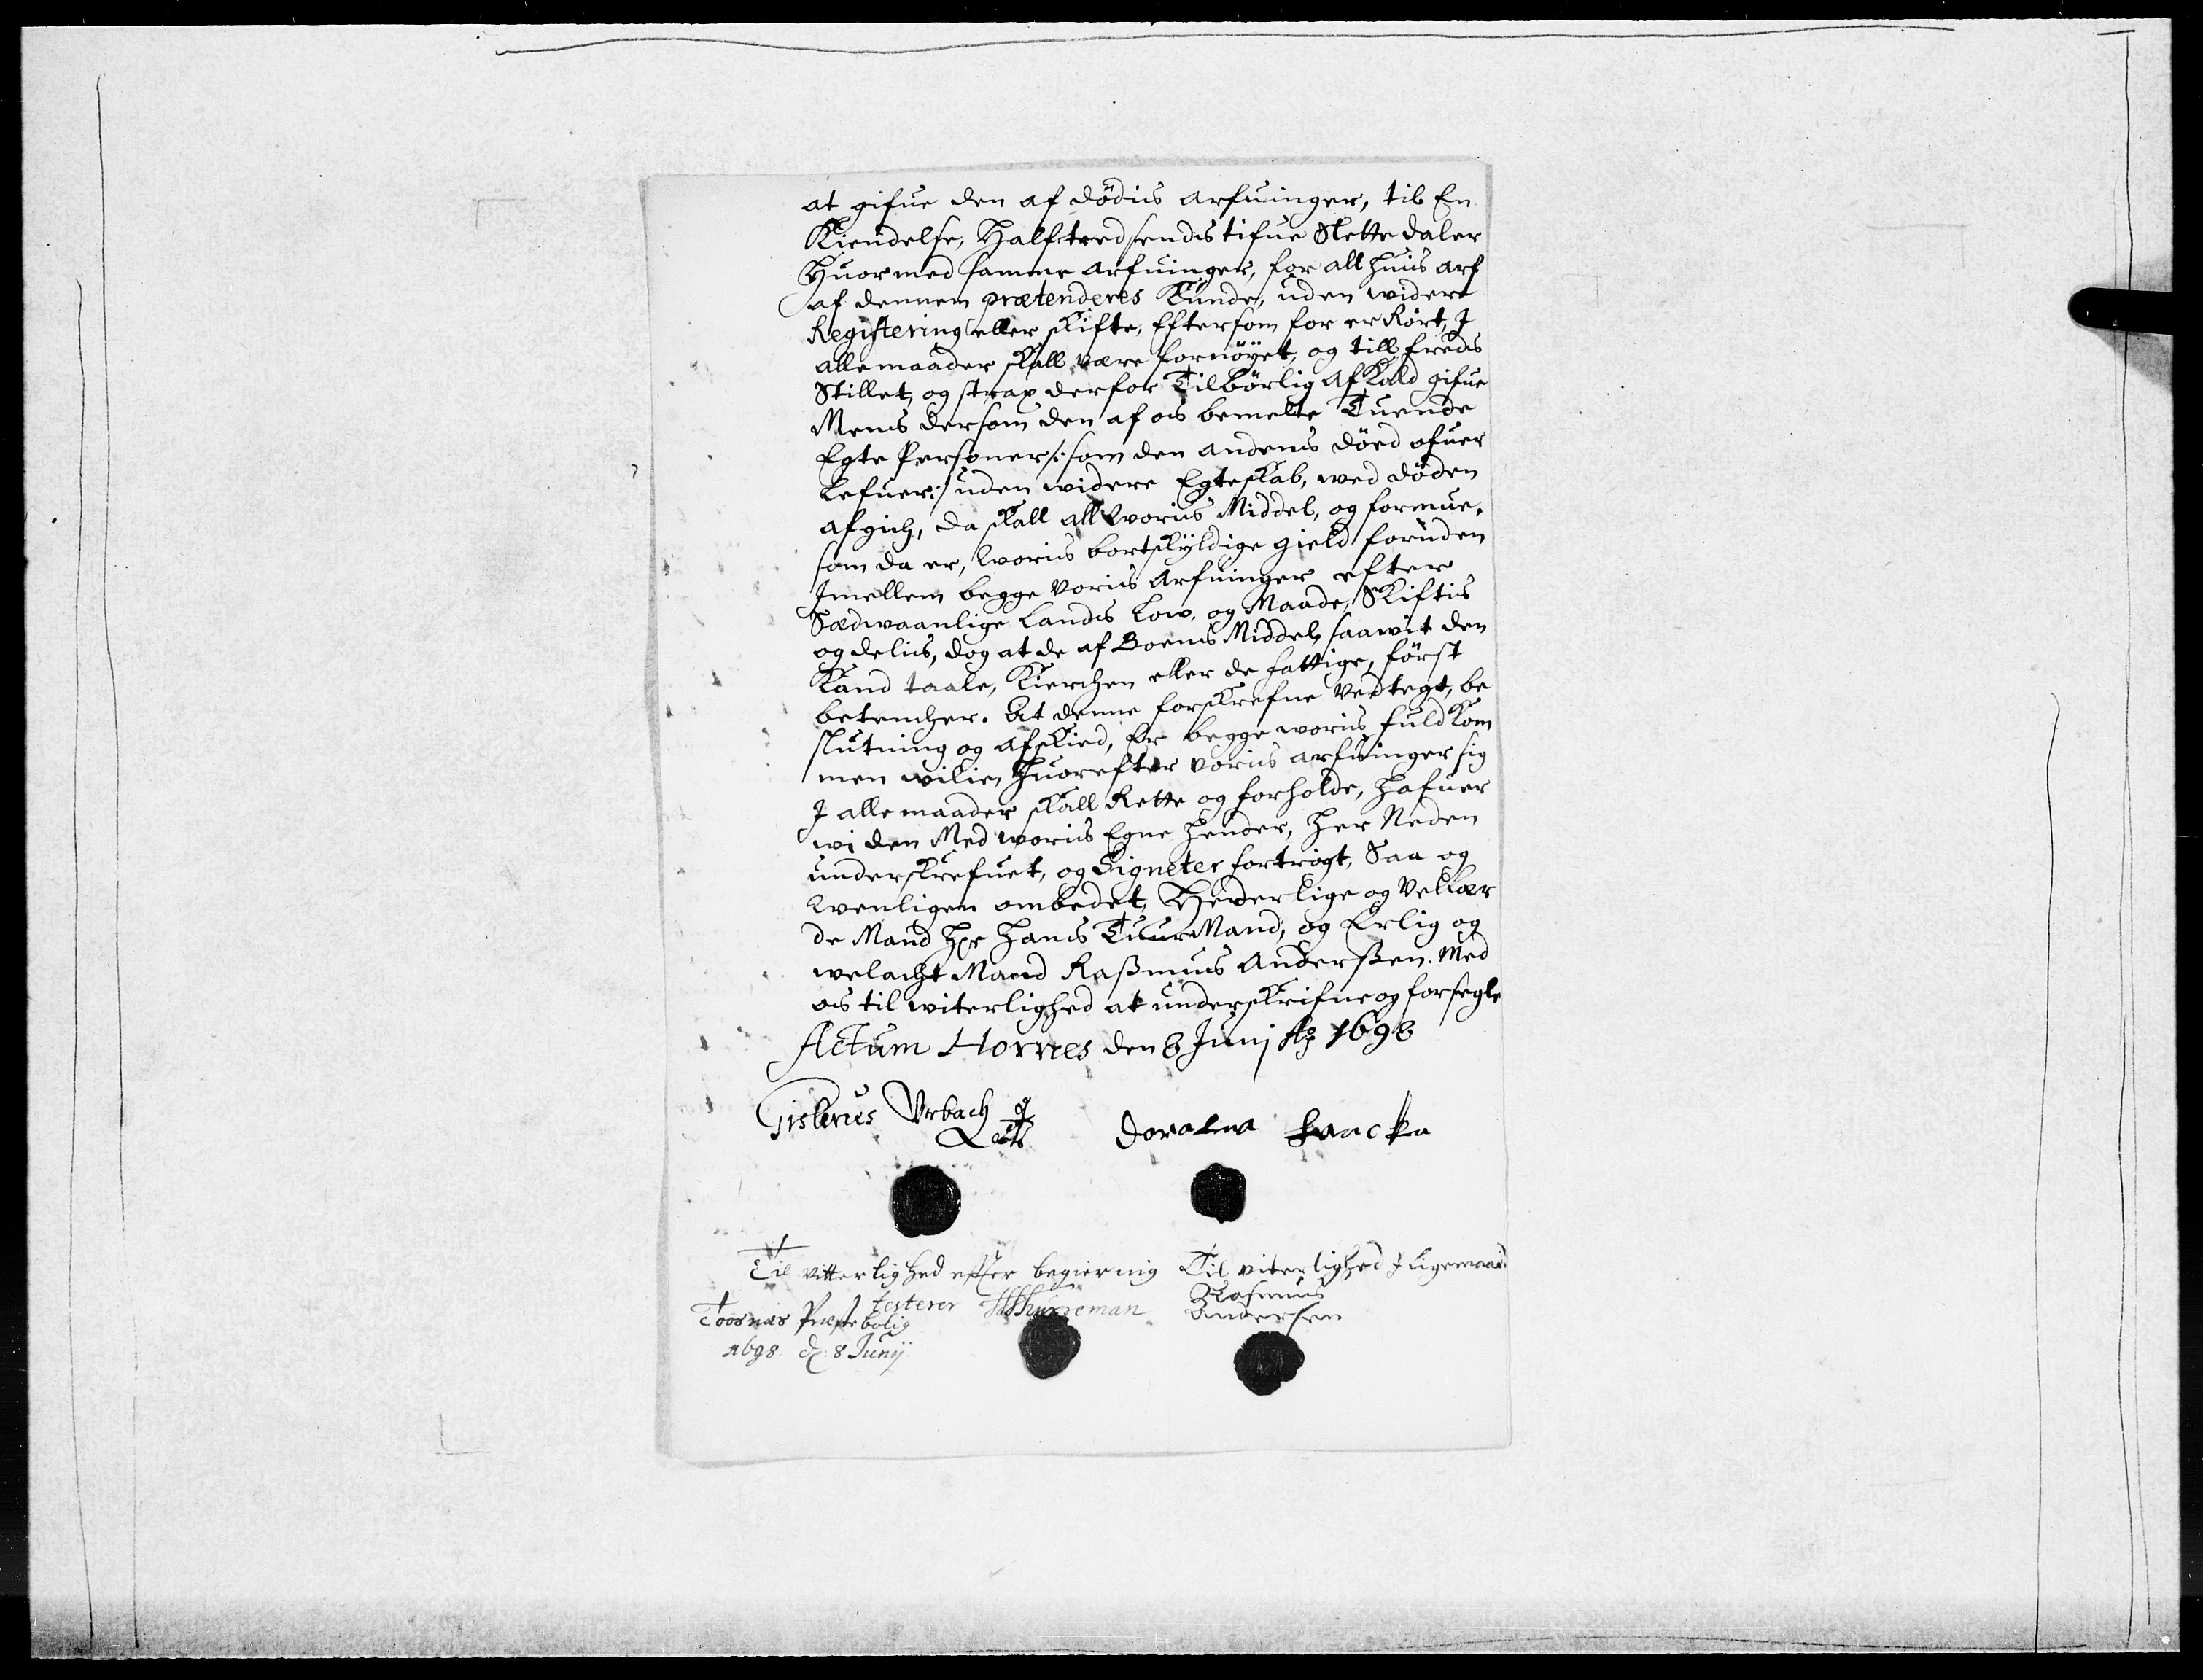 at gifue den af dødis arfuinger, til En
Kiendelse, Halftredsendstifue Slette daler
Huormed samme arfuinger, for all huis arf
af dennem prætenderes Kunde, uden widere
Registering eller skifte, Eftersom for er Rørt, J
alle maader skall være fornøyet, og till freds
Stillet, og strax derfor Tilbørlig afkald gifue
Mens dersom den af os bemelte Tuende
Egte Personer /: som den andens død ofuer
Lefuer :/ uden widere Egteskab, wed døden
afgich, da skall all woris Middel, og formue,
som da er, woris bortskyldige gield foruden
Jmellem begge voris arfuinger efter
Sædwaanlige Lands Low, og Maade, Skiftis
og delis, dog at de af Boens Middel, saawit den
Kand taale, Kierchen eller de fattige, først
betencher. At denne forskrefne Vedtegt, be
slutning og afskied, Er begge woris fuldkom
men wilie, Huorefter voris arfuinger sig
J alle maader skall Rette og forholde, hafuer
wi den Med woris Egne hender, her Neden
underskrefuet, og Signeter fortrøgt, Saa og
wenligen ombedet, Hederlige og Vellær
de Mand Hr Hans TuurMand, og Erlig og
welacht Mand Rasmus Anderssen. Med
os til witerlighed at underskrifue og forsegle
Actum Hornes den 8 Junij Ao 1698
Gislerus Vrbach
Dorotea Haacka
Til vitterlighed efter begiernig
Til viterlighed J ligemaade
testerer HThurreman
Rasmus
Andersen
Toornes Præstebolig
1698. d: 8 Junij